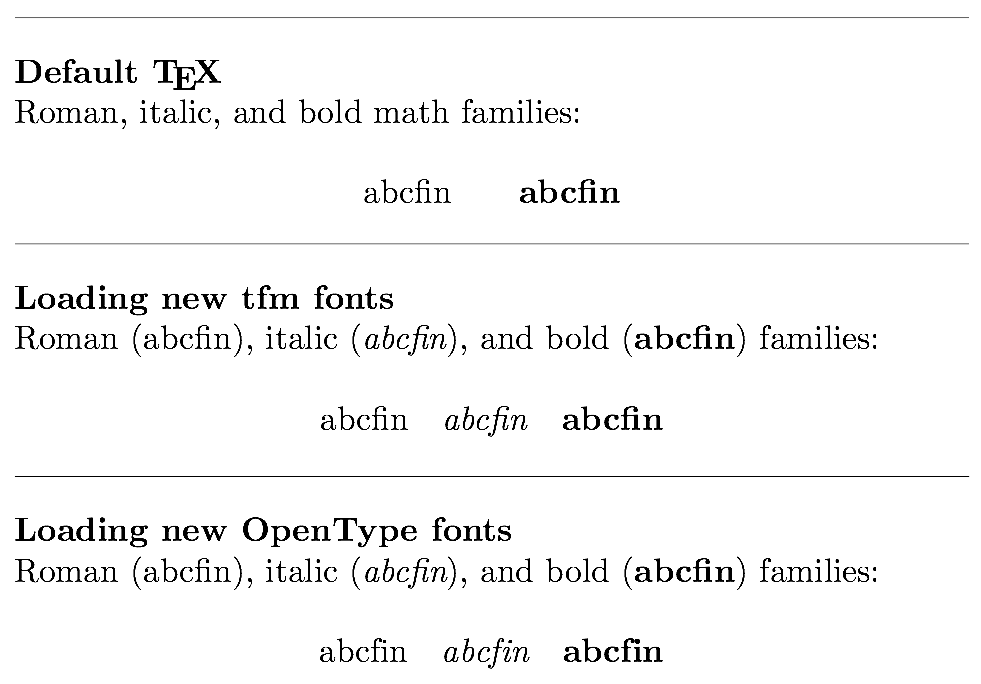 Default TEX
Roman, italic, and bold math families:
abcfin abcfin
Loading new tfm fonts
Roman (abcfin), italic (abcfin), and bold (abcfin) families:
abcfin abcfin abcfin
Loading new OpenType fonts
Roman (abcfin), italic (abcfin), and bold (abcfin) families:
abcfin abcfin abcfin